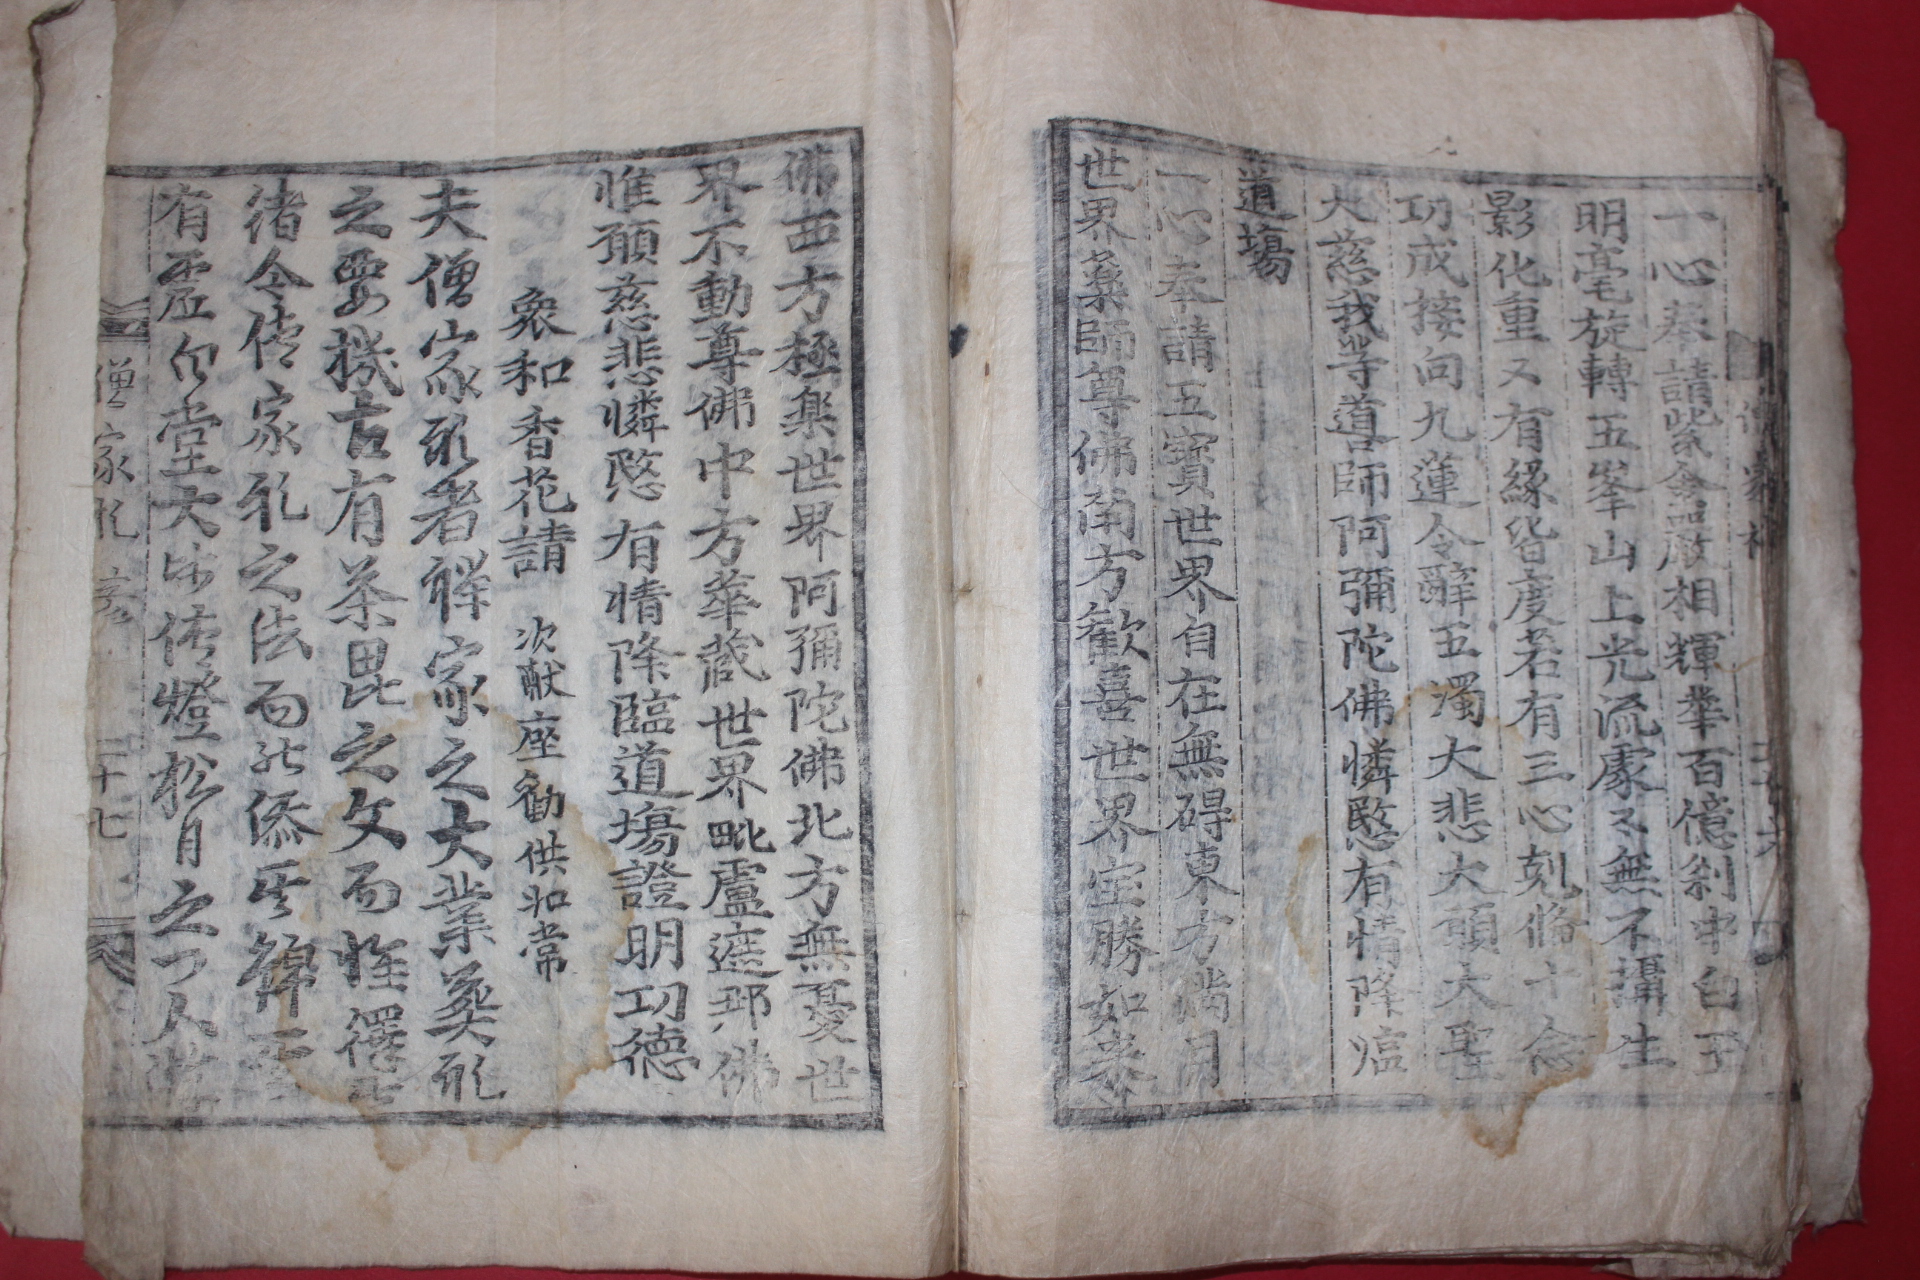 一心奉請紫金嚴相輝華百億刹中白玉
明毫旋轉五峯山上光流處々無不攝生
影化重又有緣皆度若有三心剋脩十念
功成接向九蓮令辭五濁大悲大願大聖
大慈我等導師阿彌陀佛憐愍有情降臨
道塲
一心奉請五寶世界自在無碍東方滿月
世界藥師尊佛南方歡喜世界宝勝如來
佛西方極楽世界阿彌陀佛北方無憂世
界不動尊佛中方華蔵世界毗盧遮那佛
惟願慈悲憐愍有情降臨道塲證明功德
衆和香花請 次献座勧供如常
夫僧家礼者禪家之大業葬礼
之要機古有茶毘之文而惟釋
徒今傳家礼之法而
有虛白堂大師傳燈松月之一人
僧家礼 二十七